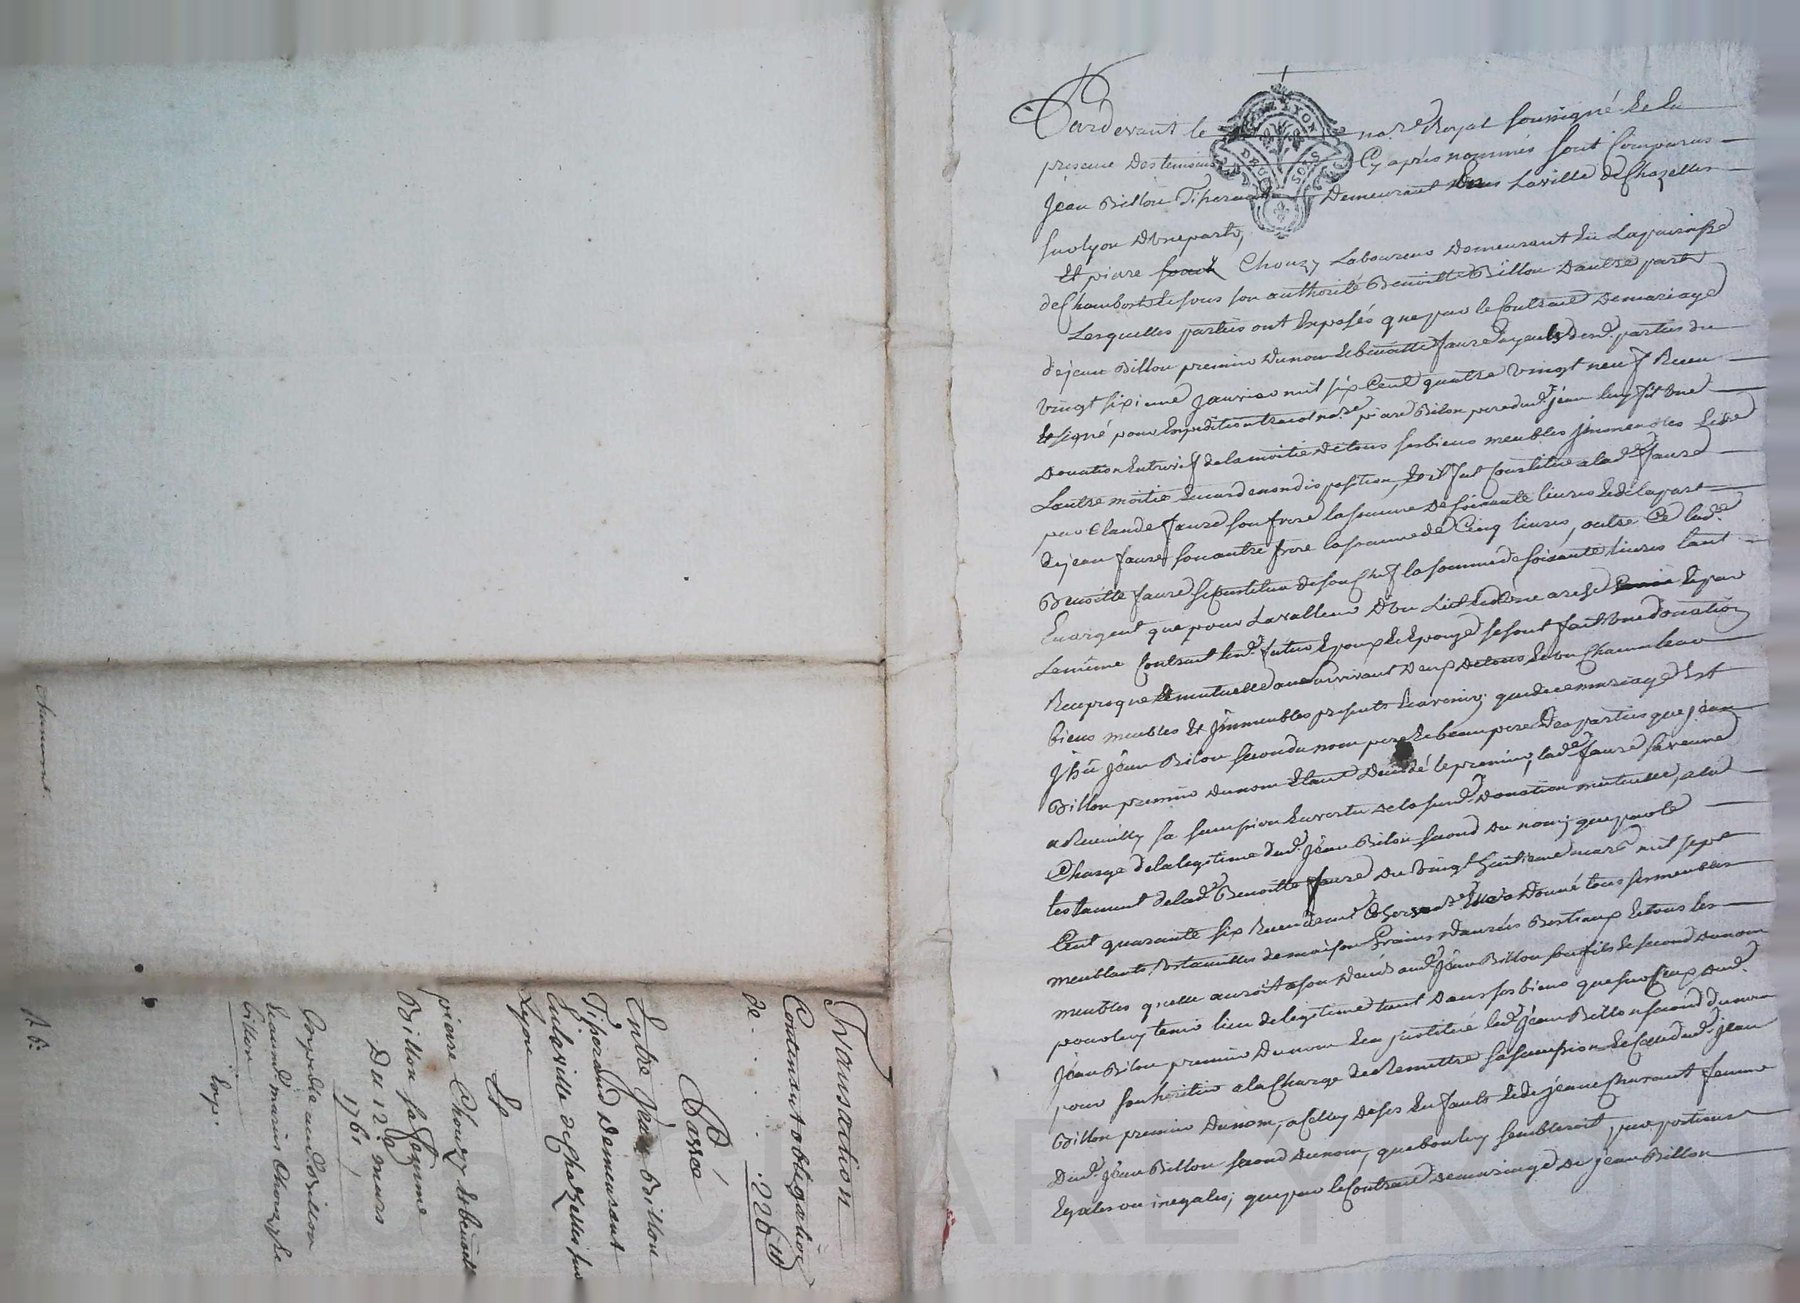 Pardevant le no.re Royal soussigné Et la
presence des temoins Cy après nommés sont Comparus
Jean Billon Tiserand Demeurant Dans La ville de Chazelles
sur lyon D'une part,
Et piere Chouzy Laboureur Demeurant En La paroisse
de Chambost Et sous son authorité Benoitte Billon D'autre part
Lesquelles parties ont Exposés que par le Contrait De mariage
de jean Billon premier Du nom Et benoitte faure ayeuls Desd. parties du
vingt sixieme janvier mil six Cent quatre vingt neuf Receu
Et signé pour Expedition no.re piere Bilon pere dud. jean luy fit Une
Donation Entrevif de la moitié De tous ses biens meubles jmmeubles Et de
L'autre moitié En cas de non disposition, Et il fut Constitué a lad.e faure
par Claude faure son frere la somme De soixante livres Et de la part
de jean faure son autre frere la somme de Cinq livres, outre Ce lad.e
Benoitte faure se Constitua de son Chef la somme de soixante livres tant
En argent que pour La valleur D'un Lit Et D'une arche Et par
Le même Contrait Lesd. futurs Epoux Et Epouse se sont fait Une donation
Reciproque Et mutuelle au survivant D'eux De tous Et un Chacun leur
biens meubles Et jmmeubles presents Et avenir; que de ce mariage Est
jssu jean Bilon second du nom pere Et beau pere Des parties que jean
Billon premier Du nom Etant Decedé le premier, lad.e faure sa veuve
a Recuilly sa sucession En vertu de la susd. Donation mutuelle, a la
Charge de la legitime dud. jean Bilon second Du nom; que par le
testament de lad.e Benoitte faure Du vingt huitieme mars mil sept
Cent quarante six Receu a Donné tous ses meubles
meublants, Ustancilles de maison Grains Danrées Bestiaux Et tous les
meubles qu'elle auroit a son Decés aud. jean Billon son fils Le second Du nom
pour luy tenir lieu de legitime tant Dans ses biens que sur Ceux Dud.
jean Bilon premier Du nom Et a jnstitué led. jean Billon second du nom
pour son heritier a la Charge de Remettre sa sucession Et Celle dud. jean
Billon premier Du nom, a Celuy de ses Enfants Et de jeane femme
Dud. jean Billon second Du nom, que bon luy sembleroit, par portions
Egales ou inegales; que par le Contrait De mariage De jean Billon
Transaction
Contenant obligation
de . . . . 226 ₶
Passé
Entre Jean Billon
Tiserand Demeurant
En la ville de Chazelles sur
Lyon
Et
piere Chouzy Et benoitte
Billon sa femme
Du 12.e mars
1761
Billon
Exp.